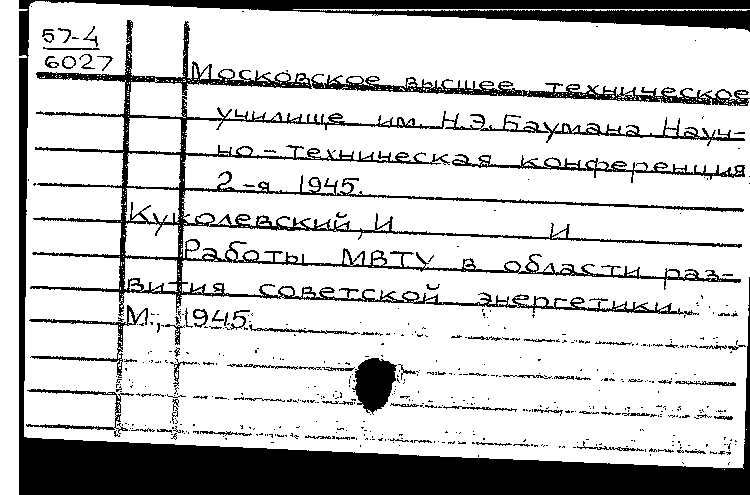 57-4
6027
Московское высшее техническое
училище им. Н.Э.Баумана. Науч-
но-техническая конференция
2-я. 1945.
Куколевский, И И
Работы МВТУ в области раз-
вития советской энергетики.
М., 1945.